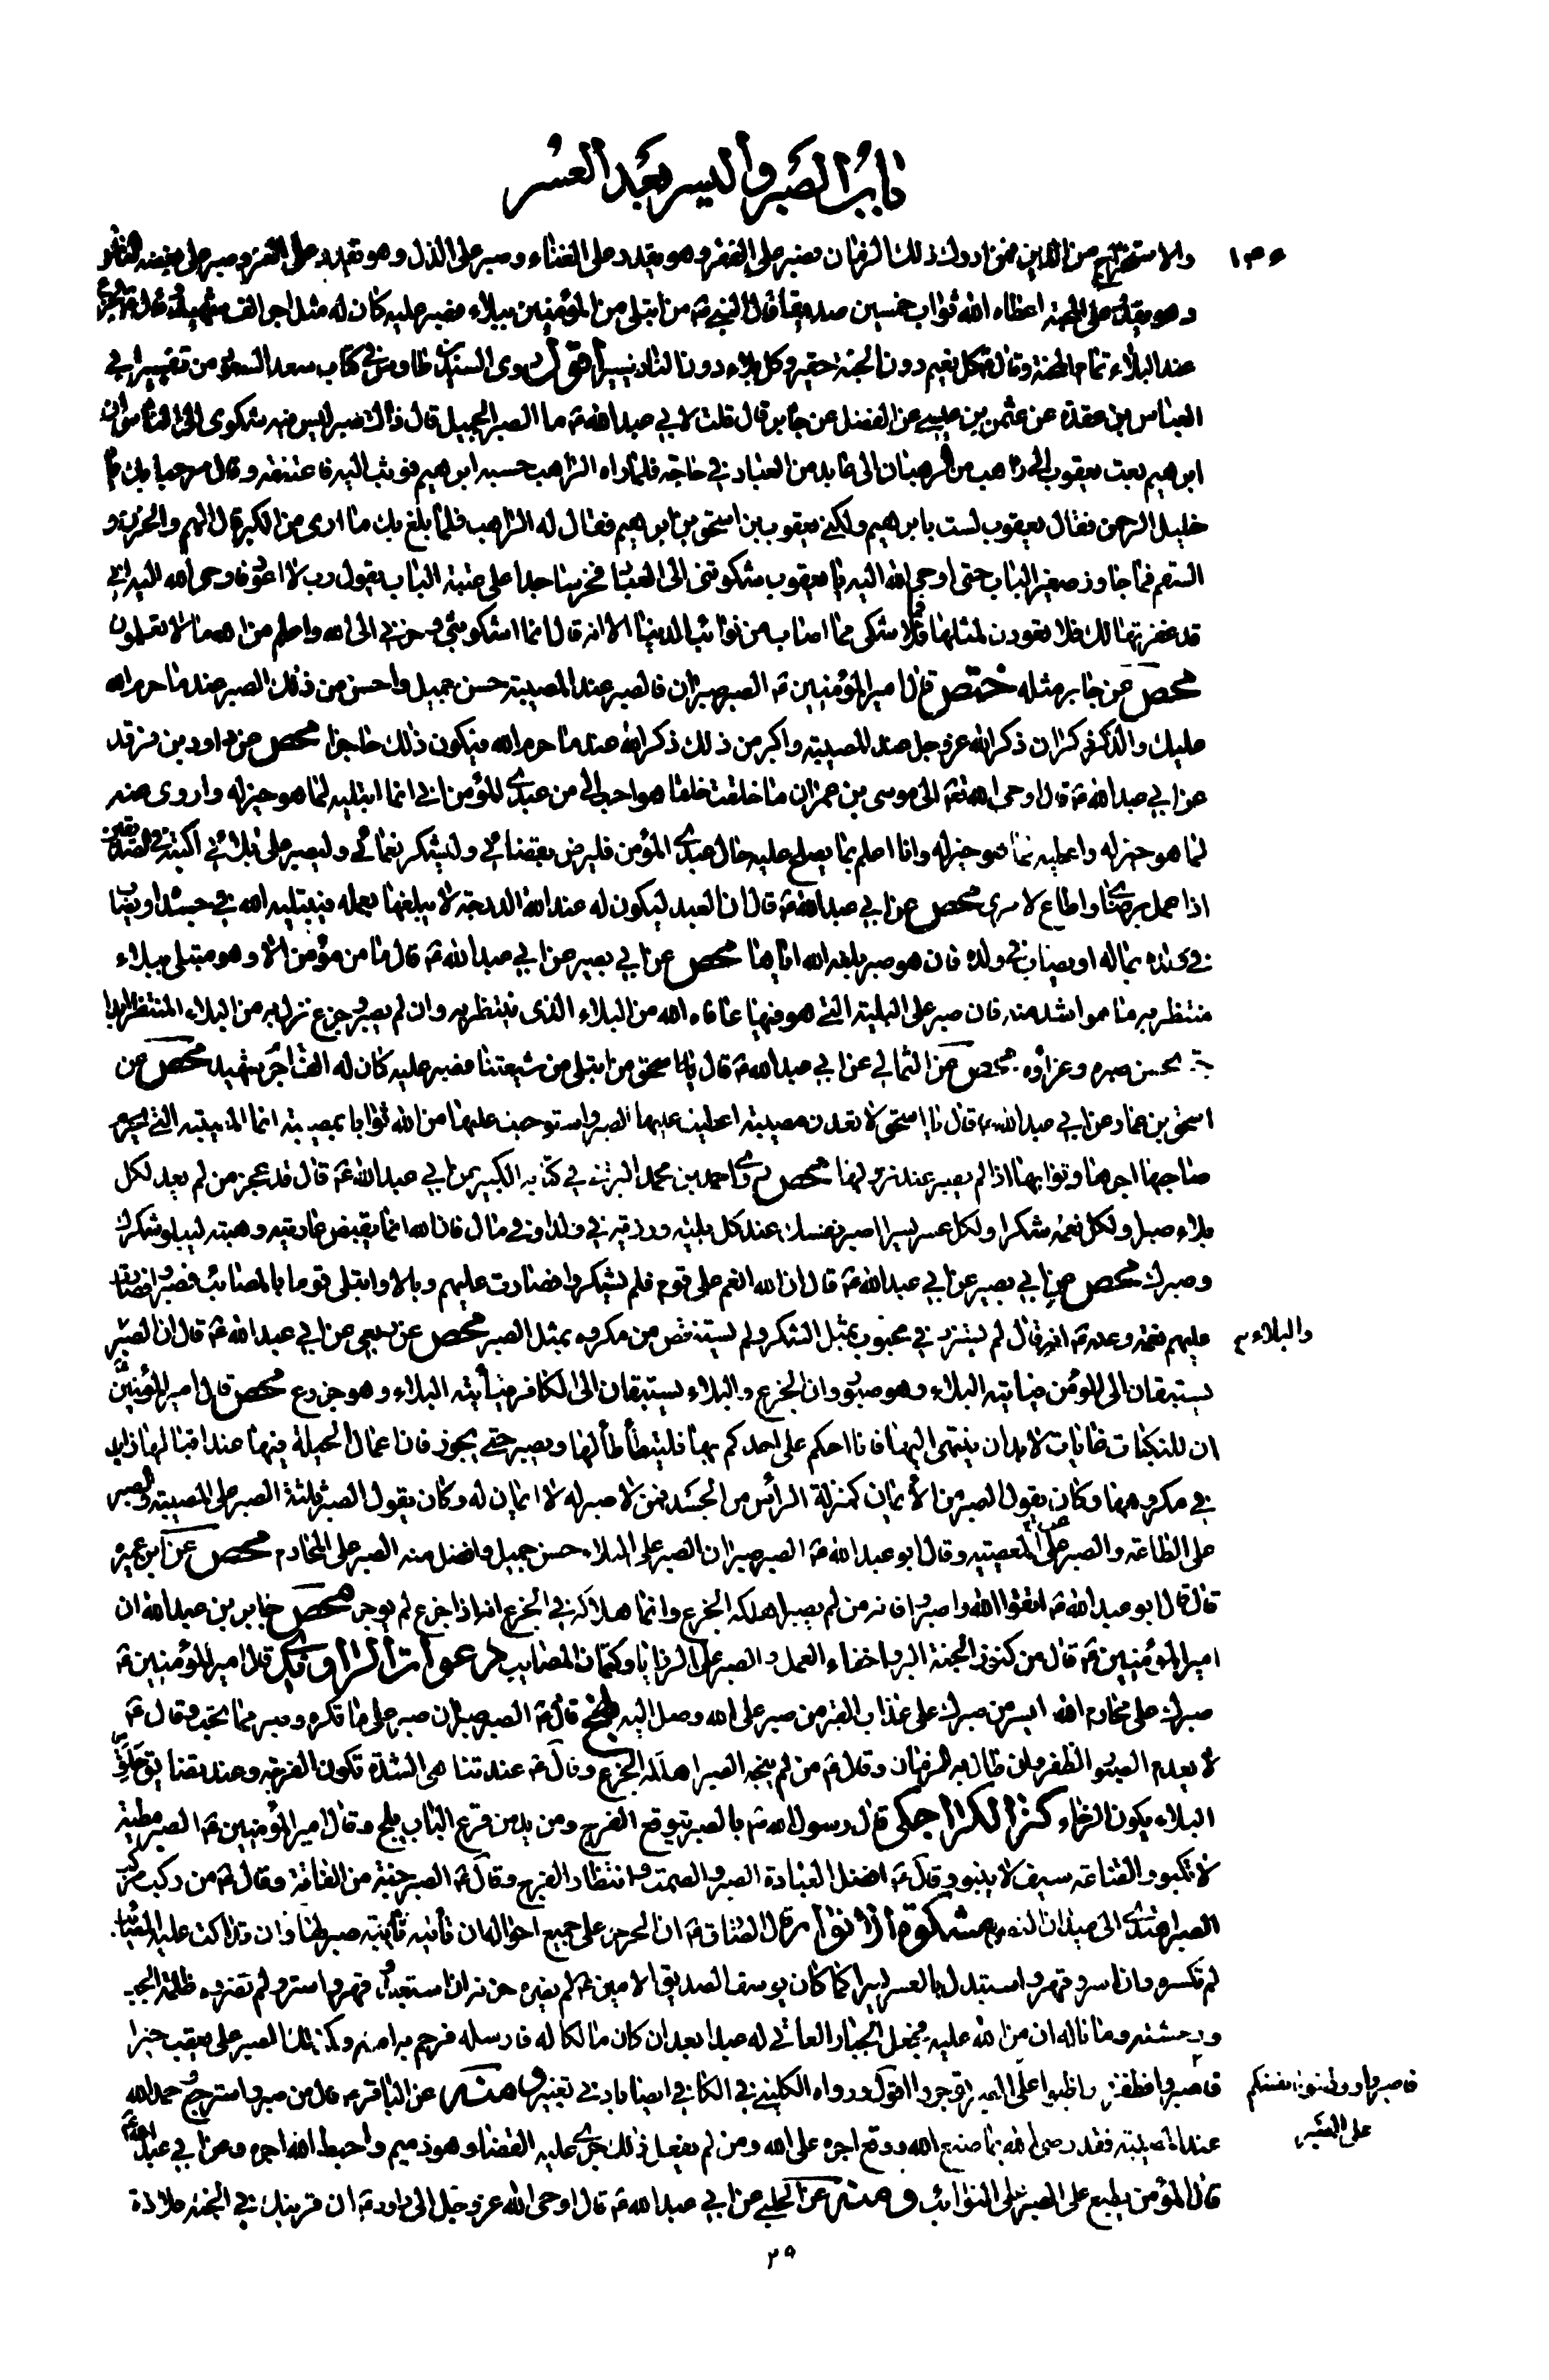 باب الصبر واليسر بعد العسر
والاستخراج من الدين فمن ادرك ذلك الزمان فصبر على الفقر وهو يقدر على الغناء وصبر على الذل وهو يقدر على العز وصبر على بغضه الناس
وهو يقدر على المحبة اعطاه الله ثواب خمسين صديقا قال النبي ص من ابتلى من المؤمنين ببلاء فصبر عليه كان له مثل اجر الف شهيد وقال الجزع
عند البلاء تمام المحنة وقال كل نعيم دون الجنة حقير وكل بلاء دون النار يسير اقول روى السيد بن طاوس في كتاب سعد السعود من تفسير ابي
العباس بن عقدة عن عثمن بن عيسى عن المفضل عن جابر قال قلت لابي عبد الله ع ما الصبر الجميل قال ذاك صبر ليس فيه شكوى الى الناس ان
ابرهيم بعث يعقوب الى راهب من الرهبان الى عابد من العباد في حاجة فلما راه الراهب حسبه ابرهيم فوثب اليه فاعتنقه وقال مرحبا بك يا
خليل الرحمن فقال يعقوب لست بابرهيم ولكني يعقوب بن اسحق بن ابرهيم فقال له الراهب فلما بلغ بك ما ارى من الكبر قال الهم والحزن و
السقم فما جاوز صغير الباب حتى اوحى الله اليه يا يعقوب شكوتني الى العباد فخر ساجدا على عتبة الباب يقول رب لا اعود فاوحى الله اليه اني
قد غفرتها لك فلا تعودن لمثلها فما شكى مما اصابه من نوائب الدنيا الا انه قال انما اشكو بثي وحزني الى الله واعلم من الله ما لا تعلمون
محص عن جابر مثله ختص قال امير المؤمنين ع الصبر صبران فالصبر عند المصيبة حسن جميل واحسن من ذلك الصبر عند ما حرم الله
عليك والذكر ذكران ذكر الله عز وجل عند المصيبة واكبر من ذلك ذكر الله عند ما حرم الله فيكون ذلك حاجزا محص عن داود بن فرقد
عن ابي عبد الله ع قال اوحى الله تع الى موسى بن عمران ما خلقت خلقا هو احب الي من عبدي المؤمن اني انما ابتليه لما هو خير له وازوى عنه
لما هو خير له واعطيه لما هو خير له وانا اعلم بما يصلح عليه حال عبدي المؤمن فليرض بقضائي وليشكر نعمائي وليصبر على بلائي اكتبه في الصديقين
اذا عمل برضاي واطاع لامري محص عن ابي عبد الله ع قال ان العبد ليكون له عند الله الدرجة لا يبلغها بعمله فيبتليه الله في جسده او يصاب
بماله او يصاب في ولده فان هو صبر بلغه الله اياها محص عن ابي بصير عن ابي عبد الله ع قال ما من مؤمن الا وهو مبتلى ببلاء
منتظر به ما هو اشد منه فان صبر على البلية التي هو فيها عافاه الله من البلاء الذي ينتظر به وان لم يصبر وجزع نزل به من البلاء المنتظر ابدا
حتى يحسن صبره وعزاؤه محص عن الثمالي عن ابي عبد الله ع قال يا اسحق من ابتلى من شيعتنا فصبر عليه كان له اجر الف شهيد محص عن
اسحق بن عمار عن ابي عبد الله ع قال يا اسحق لا تعدن مصيبة اعطيت عليها الصبر واستوجبت عليها من الله ثوابا بمصيبة انما المصيبة التي يحرم
صاحبها اجرها وثوابها اذا لم يصبر عند نزولها محص روى احمد بن محمد البرقي في كتابه الكبير عن ابي عبد الله ع قال قد عجز من لم يعد لكل
بلاء صبرا ولكل نعمة شكرا ولكل عسر يسرا اصبر نفسك عند كل بلية ورزية في ولد او في مال فان الله انما يقبض عاريته وهبته ليبلو شكرك
وصبرك محص عن ابي بصير عن ابي عبد الله ع قال ان الله انعم على قوم فلم يشكروا فصارت عليهم وبالا وابتلى قوما بالمصائب فصبروا فصارت
عليهم نعمة وعنه ع انه قال لم يستزد في محبوب بمثل الشكر ولم يستنقص من مكروه بمثل الصبر محص عن ربعي عن ابي عبد الله ع قال ان الصبر
والبلاء
يستبقان الى المؤمن فياتيه البلاء وهو صبور وان الجزع والبلاء يستبقان الى الكافر فيأتيه البلاء وهو جزوع محص قال امير المؤمنين
ان للنكبات غايات لا بد ان ينتهى اليها فاذا احكم على احدكم بها فليتطأطأ لها ويصبر حتى يجوز فان اعمال الحيلة فيها عند اقبالها زايد
في مكروهها وكان يقول الصبر من الايمان كمنزلة الراس من الجسد فمن لا صبر له لا ايمان له وكان يقول الصبر ثلثة الصبر على المصيبة والصبر
على الطاعة والصبر على المعصية وقال ابو عبد الله ع الصبر صبران الصبر على البلاء حسن جميل وافضل منه الصبر على المحارم محص عن ابن عميرة
قال قال ابو عبد الله ع اتقوا الله واصبروا فانه من لم يصبر اهلكه الجزع وانما هلاكه في الجزع انه اذا جزع لم يوجر محص جابر بن عبد الله ان
امير المؤمنين ع قال من كنوز الجنة البر واخفاء العمل والصبر على الرزايا وكتمان المصايب دعوات الراوندي قال امير المؤمنين ع
صبرك على محارم الله ايسر من صبرك على عذاب القبر من صبر على الله وصل اليه نهج قال ع الصبر صبران صبر على ما تكره وصبر مما تحب وقال ع
لا يعدم الصبور الظفر وان طال به الزمان وقال ع من لم ينجه الصبر اهلكه الجزع وقال ع عند تناهى الشدة تكون الفرجة وعند تضايق حلق
البلاء يكون الرخاء كنز الكراجكى قال رسول الله ص بالصبر يتوقع الفرج ومن يدمن قرع الباب يلج وقال امير المؤمنين ع الصبر مطية
لا تكبو والقناعة سيف لا ينبو وقال ع افضل العبادة الصبر والصمت وانتظار الفرج وقال ع الصبر جنة من الفاقة وقال ع من ركب مركب
الصبر اهتدى الى ميدان النصر مشكوة الانوار قال الصادق ع ان الحر حر على جميع احواله ان نابته نائبة صبر لها وان تداكت عليه المصائب
لم تكسره وان اسر وقهر واستبدل بالعسر يسرا كما كان يوسف الصديق الامين ع لم يضره حزنه ان استعبد وقهر واسر ولم تضرره ظلمة الجب
ووحشته وما ناله ان من الله عليه فجعل الجبار العاتي له عبدا بعد ان كان مالكا له فارسله فرحم به امة وكذلك الصبر على يعقب خيرا
فاصبروا تظفروا واظبوا على الصبر توجروا اقول ورواه الكليني في الكافي ايضا باد في تغيير ومنه عن الباقر ع قال من صبر واسترجع وحمد الله
فاصبروا ووطنوا انفسكم
على الصبر
عند المصيبة فقد رضى الله بما صنع الله ووقع اجره على الله ومن لم يفعل ذلك جرى عليه القضا وهو ذميم واحبط الله اجره وعن ابي عبد الله
قال المؤمن يطبع على الصبر على النوائب ومنه عن الحلبي عن ابي عبد الله ع قال اوحى الله عز وجل الى داود ع ان قرينك في الجنة خلادة
٢٩